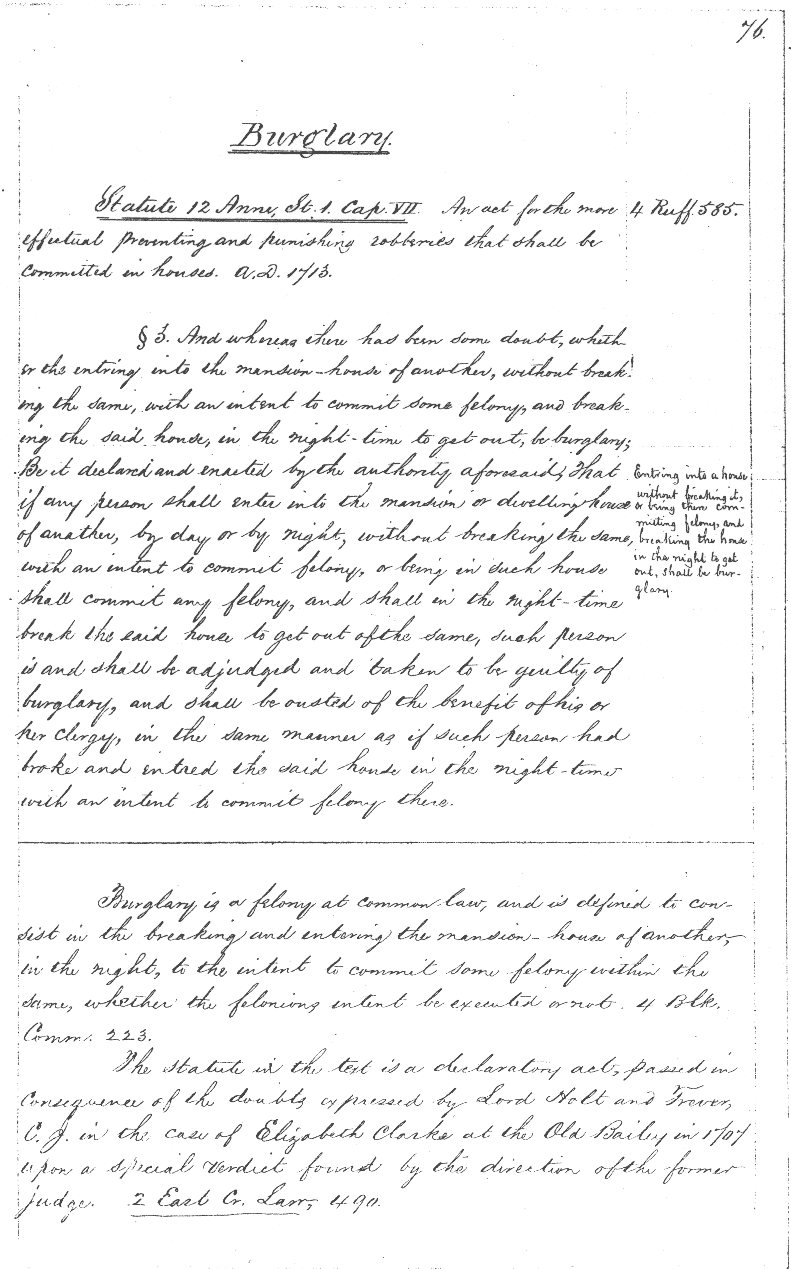 76.
Burglary.
Statute 12 Anne, St. 1. Cap. VII. An act for the more
4 Ruff. 585.
effectual preventing and punishing robberies that shall be
committed in houses. A.D. 1713.
§ 3. And whereas there has been some doubt, wheth-
er the entring into the mansion-house of another, without break-
ing the same, with an intent to commit some felony, and break-
ing the said house, in the night-time to get out, be burglary;
Be it declared and enacted by the authority aforesaid, That
if any person shall enter into the mansion or dwelling house
of another, by day or by night, without breaking the same,
with an intent to commit felony, or being in such house
shall commit any felony, and shall in the night-time
break the said house to get out of the same, such person
is and shall be adjudged and taken to be guilty of
burglary, and shall be ousted of the benefit of his or
her clergy, in the same manner as if such person had
broke and entred the said house in the night-time
with an intent to commit felony there.
Entring into a house
without breaking it,
or being there com-
mitting felony, and
breaking the house
in the night to get
out, shall be bur-
glary.
Burglary is a felony at common law, and is defined to con-
sist in the breaking and entering the mansion-house of another,
in the night, to the intent to commit some felony within the
same, whether the felonious intent be executed or not. 4 Blk.
Comm. 223.
The statute in the text is a declaratory act, passed in
consequence of the doubts expressed by Lord Holt and Trevor,
C. J. in the case of Elizabeth Clarke at the Old Bailey in 1707
upon a special verdict found by the direction of the former
judge. 2 East Cr. Law, 490.